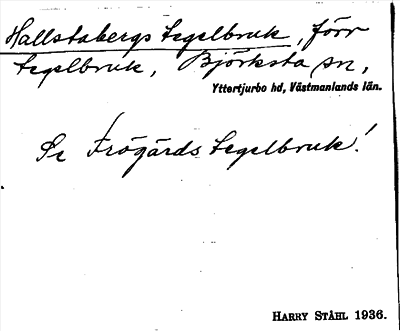 Hallstabergs tegelbruk, förr
tegelbruk, Björksta sn,
Yttertjurbo hd, Västmanlands län.
Se Frögärds tegelbruk!
HARRY STÅHL 1936.